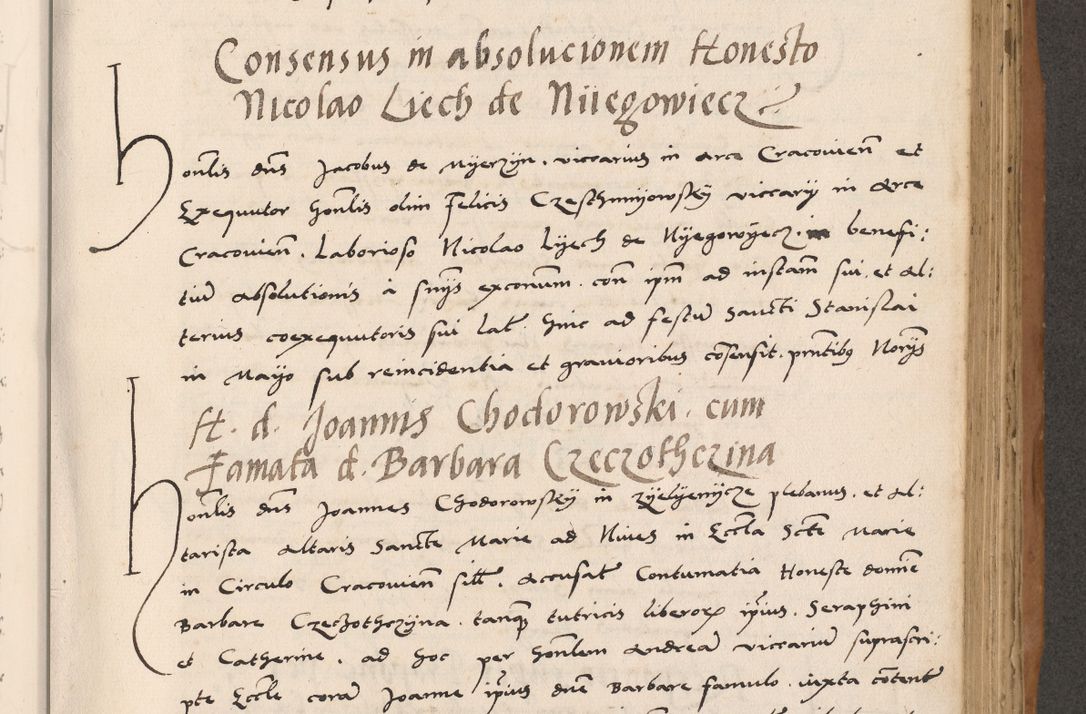 Consensus in absolucionem Honesto
Nicolao Liech de Niiegowiecz
Honlis dns Jacobus de Myerzyn. viccarius in Arce Cracovien et
Exequutor Honlis olim Felicis Czeschmyowsky viccarij in Arce
Cracovien. Laborioso Nicolao Lyech de Nyegowyecz. benefi:
tiu absolutionis à snijs exconum. con ipm ad instam sui. et Al:
terius coexequutoris sui lat. hinc ad festu Sancti Stanislai
in Mayo sub reincidentia et gravioribus consensit. pntibus Norijs
H. d. Joannis Chodorowski. cum
Famata d. Barbara Czeczothczina
Honlis dns Joannes Chodorowsky in Zyelyenycze plebanus. et Al:
tarista Altaris Sancte Marie ad Nives in Eccla Scte Marie
in Circulo Cracovien sitt. Accusat Contumatia Honeste domne
Barbare Czeczothczyna. tanq tutricis liberor ipius. Seraphini
et Catherine. ad hoc per honlem Andrea viccariu suprascri:
pte Eccle cora Joanne ipius dne Barbare famulo. iuxta contenta